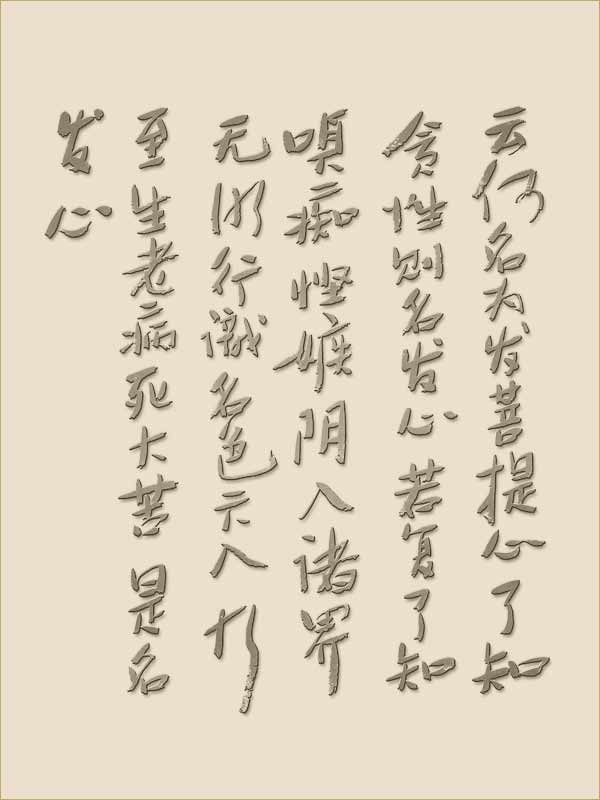 云何名为发菩提心了知
贪性则名发心若复了知
嗔痴悭嫉阴入诸界
无明行识名色六入
至生老病死大苦是名
发心